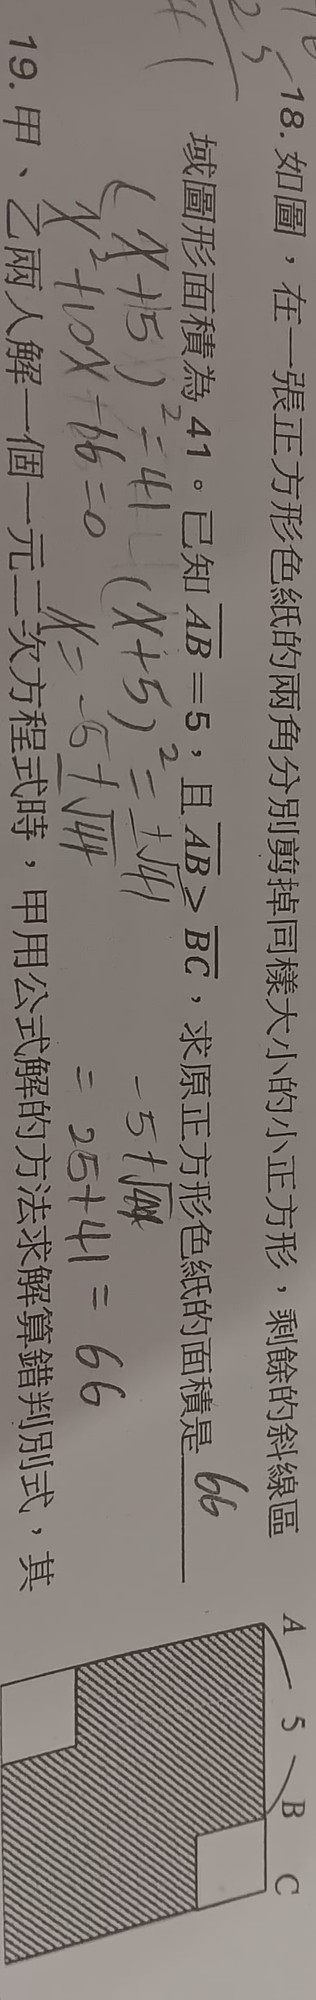 18. 如圖，在一張正方形色紙的兩角分別剪掉同樣大小的小正方形，剩餘的斜線區
域圖形面積為 41。已知 AB = 5，且 AB > BC，求原正方形色紙的面積是 66
(x+5)² = 41 (x+5)² = ±√41
x² + 10x - 16 = 0 x = -5 ± √41
= 25 + 41 = 66
A 5 B C
19. 甲、乙兩人解一個一元二次方程式時，甲用公式解的方法求解算錯判別式，其